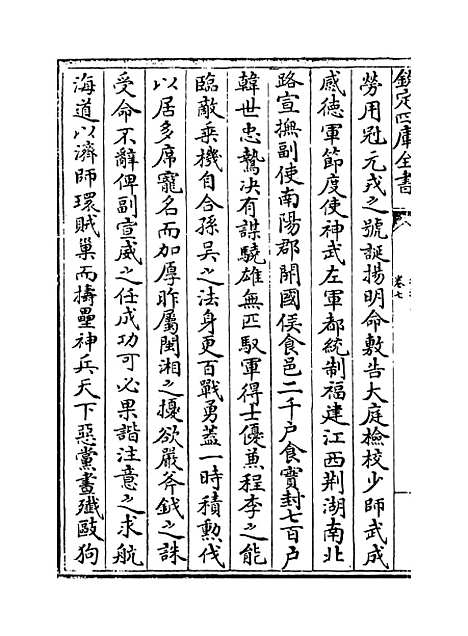 欽定四庫全書
卷七
勞用冠元戎之號誕揚明命敷告大庭檢校少師武成
感德軍節度使神武左軍都統制福建江西荆湖南北
路宣撫副使南陽郡開國侯食邑二千户食實封七百户
韓世忠鷙決有謀驍雄無匹馭軍得士優兼程李之能
臨敵乘機自合孫吳之法身更百戰勇蓋一時積勲伐
以居多席寵名而加厚昨屬閩湘之擾欲嚴斧鉞之誅
受命不辭俾副宣威之任成功可必果諧注意之求航
海道以濟師環賊巢而擣壘神兵天下惡黨盡殲毆狗